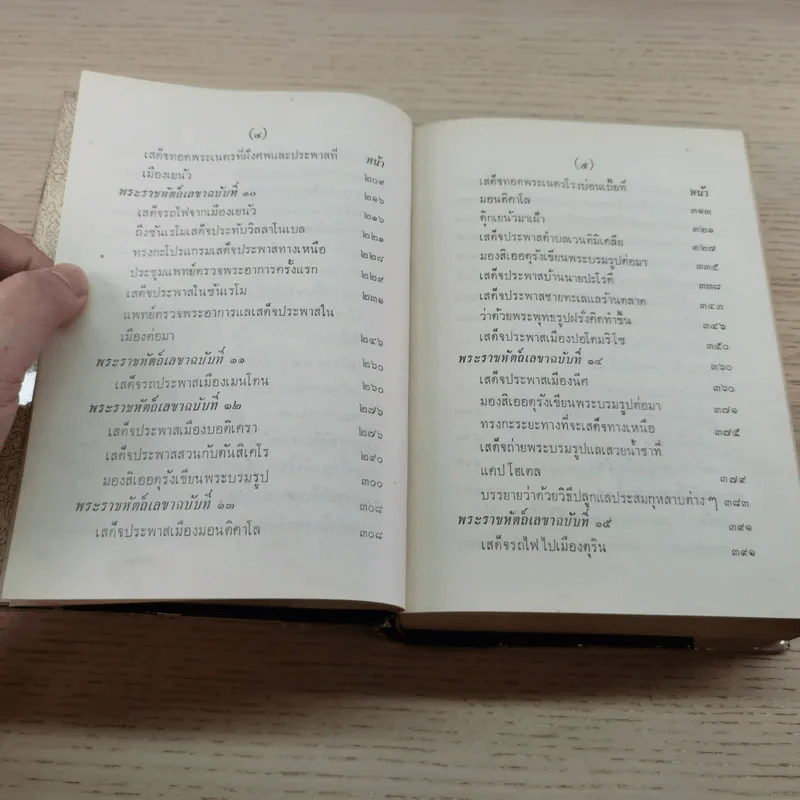 (๔)
หน้า
เสด็จทอดพระเนตรที่ฝังศพและประพาสที่
เมืองเยนัว ๒๐๙
พระราชหัตถ์เลขาฉบับที่ ๑๐ ๒๑๖
เสด็จรถไฟจากเมืองเยนัว ๒๑๖
ถึงซันเรโมเสด็จประทับวิลลาโนเบล ๒๒๑
ทรงกะโปรแกรมเสด็จประพาสทางเหนือ ๒๒๘
ประชุมแพทย์ตรวจพระอาการครั้งแรก ๒๒๙
เสด็จประพาสในซันเรโม ๒๓๑
แพทย์ตรวจพระอาการแลเสด็จประพาสใน
เมืองต่อมา ๒๔๖
พระราชหัตถ์เลขาฉบับที่ ๑๑ ๒๖๐
เสด็จรถประพาสเมืองเมนโตน ๒๖๐
พระราชหัตถ์เลขาฉบับที่ ๑๒ ๒๗๖
เสด็จประพาสเมืองบอดิเครา ๒๗๖
เสด็จประพาสสวนกับตันสิเคโร ๒๙๐
มองสิเออดุรังเขียนพระบรมรูป ๓๐๐
พระราชหัตถ์เลขาฉบับที่ ๑๓ ๓๐๘
เสด็จประพาสเมืองมอนติคาโล ๓๐๘
(๕)
หน้า
เสด็จทอดพระเนตรโรงบ่อนเบี้ยที่
มอนติคาโล ๓๑๓
ดุ๊กเยนัวมาเฝ้า ๓๒๑
เสด็จประพาสตำบลเวนติมิเคลีย ๓๒๗
มองสิเออดุรังเขียนพระบรมรูปต่อมา ๓๓๕
เสด็จประพาสบ้านนายปะโรดี ๓๓๘
เสด็จประพาสชายทะเลแลร้านตลาด ๓๔๓
ว่าด้วยพระพุทธรูปฝรั่งคิดทำขึ้น ๓๔๖
เสด็จประพาสเมืองปอโตมริโซ ๓๕๐
พระราชหัตถ์เลขาฉบับที่ ๑๔ ๓๖๐
เสด็จประพาสเมืองนีศ ๓๖๐
มองสิเออดุรังเขียนพระบรมรูปต่อมา ๓๗๑
ทรงกะระยะทางที่จะเสด็จทางเหนือ ๓๗๕
เสด็จถ่ายพระบรมรูปแลเสวยน้ำชาที่
แคป โฮเตล ๓๗๙
บรรยายว่าด้วยวิธีปลูกแลประสมกุหลาบต่าง ๆ ๓๘๓
พระราชหัตถ์เลขาฉบับที่ ๑๕ ๓๙๑
เสด็จรถไฟ ไปเมืองตุริน ๓๙๑